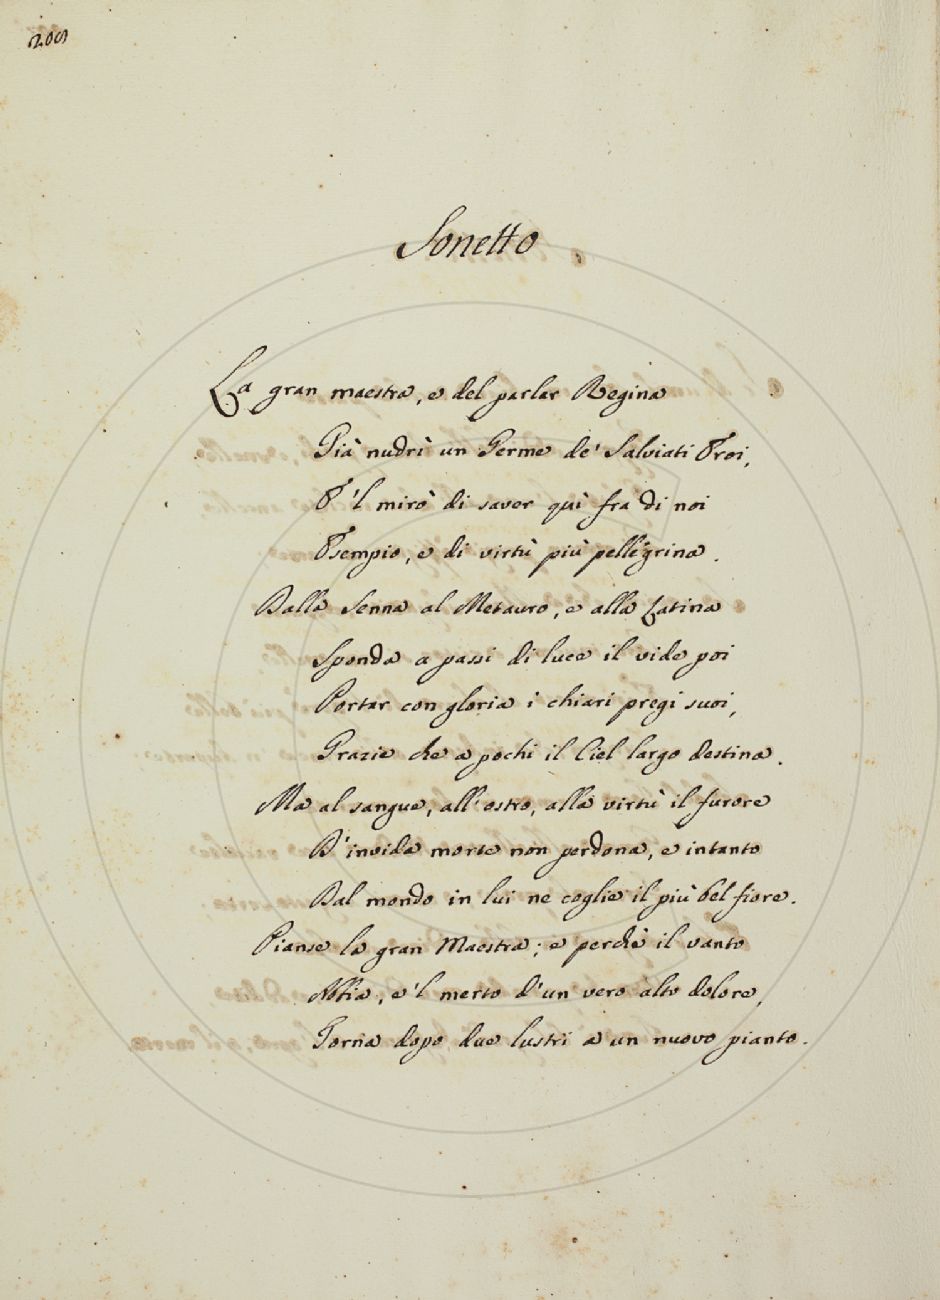 200
Sonetto
La gran maestra, e del parlar Regina
Già nudrì un Germe de' Salviati Eroi,
E 'l mirò di saver quì fra di noi
Esempio, e di virtù più pellegrina.
Dalla Senna al Metauro, e alla Latina
Sponda a passi di luce il vide poi
Portar con gloria i chiari pregi suoi,
Grazie che a pochi il Ciel largo destina.
Ma al sangue, all'ostro, alla virtù il furore
D'invida morte non perdona, e intanto
Dal mondo in lui ne coglie il più bel fiore.
Pianse la gran Maestra; e perchè il vanto
Abbia, e 'l merto d'un vero alto dolore,
Torna dopo due lustri a un nuovo pianto.